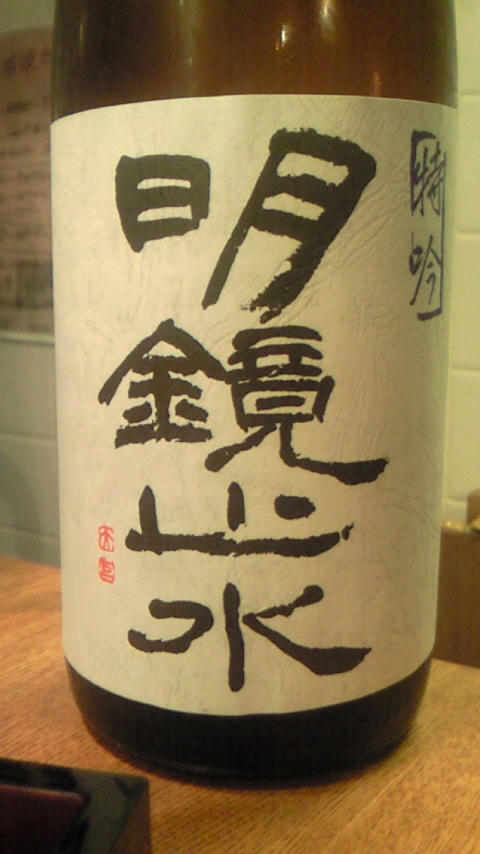 特吟
明鏡止水